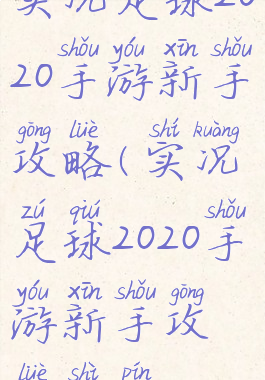 实况足球20
shǒu yóu xīn shǒu
20手游新手
gōng lüè shí kuàng
攻略(实况
zú qiú shǒu
足球2020手
yóu xīn shǒu gōng
游新手攻
lüè shì pín